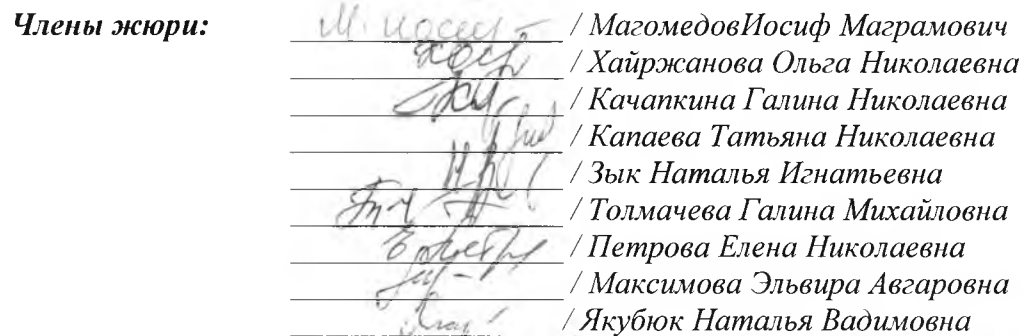 Члены жюри: / МагомедовИосиф Маграмович
/ Хайржанова Ольга Николаевна
/ Качапкина Галина Николаевна
/ Капаева Татьяна Николаевна
/ Зык Наталья Игнатьевна
/ Толмачева Галина Михайловна
/ Петрова Елена Николаевна
/ Максимова Эльвира Авгаровна
/ Якубюк Наталья Вадимовна